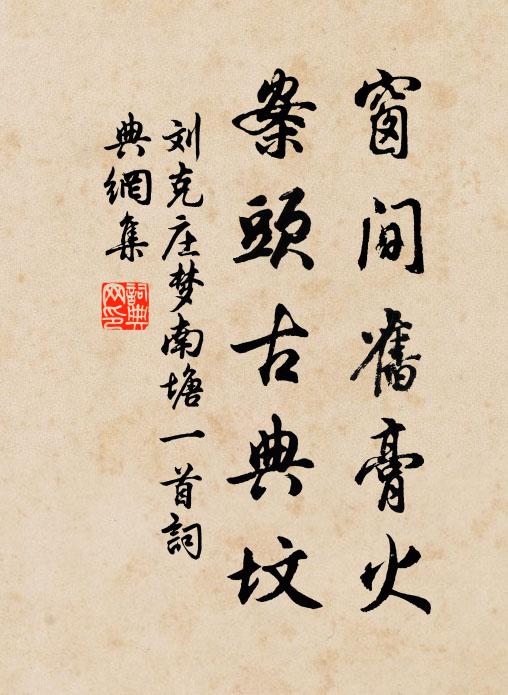 窗间舊膏火
案頭古典坟
刘克庄梦南塘一首詞
典網集
詞典
网印